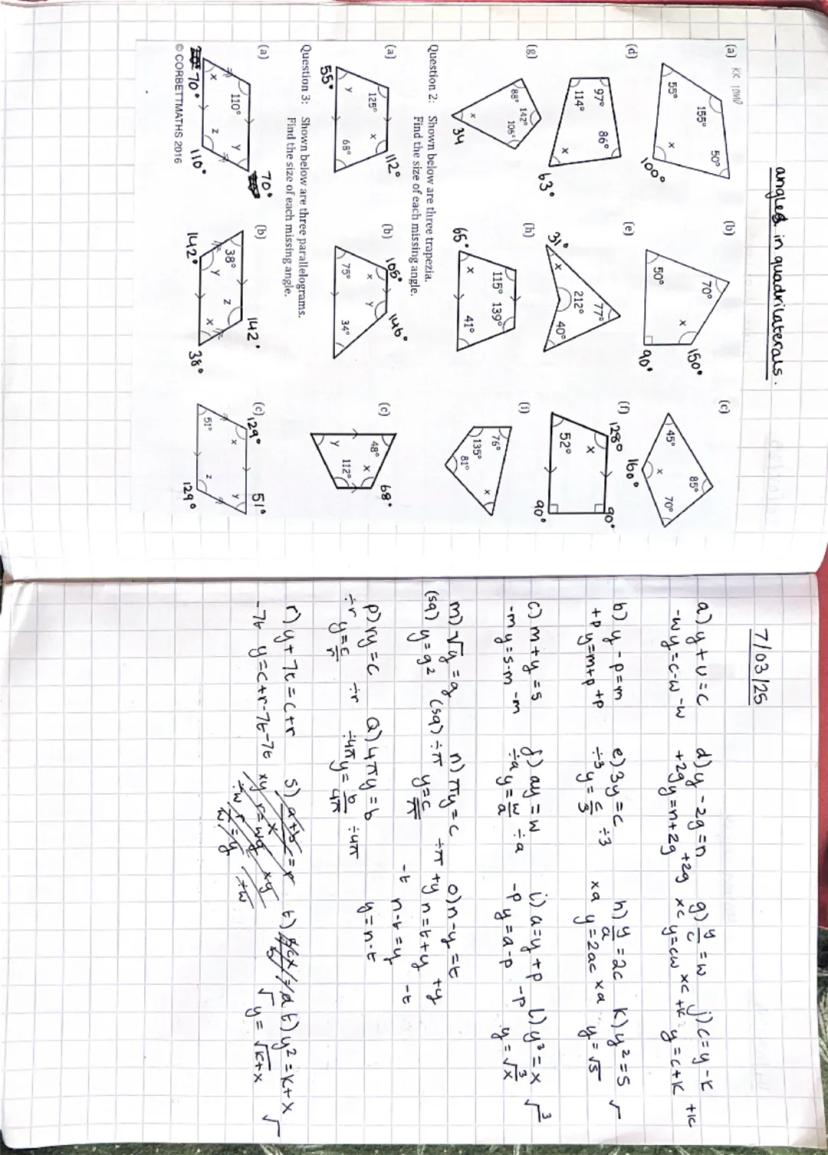 angles in quadrilaterals.
(a) 155° 50° 55° x 100°
(b) 70° x 150° 50° 90°
(c) 45° 85° x 70° 160°
(d) 97° 86° 114° x 63°
(e) 77° 212° x 31° 40°
(f) 128° x 90° 52° 90°
(g) 88° 142° 106° x 34
(h) 115° 139° x 65° 41°
(i) 76° 135° 81° x
Question 2: Shown below are three trapezia.
Find the size of each missing angle.
(a) 125° x 112° y 55° 68°
(b) 105° x y 146° 75° 34°
(c) 48° x 68° y 112°
Question 3: Shown below are three parallelograms.
Find the size of each missing angle.
(a) 110° y 70° x 70° z 110°
(b) 38° z 142° y 142° x 38°
(c) 129° x y 51° 51° z 129°
© CORBETTMATHS 2016
7/03/25
a) y + w = c
-w y = c-w -w
d) y - 2g = n
+2g y = n+2g +2g
g) y/c = w
xc y = cw xc
j) c = y - k
+k y = c+k +k
b) y - p = m
+p y = m+p +p
e) 3y = c
÷3 y = c/3 ÷3
h) y/a = 2c
xa y = 2ac xa
k) y² = 5 √
y = √5
c) m + y = s
-m y = s-m -m
f) ay = w
÷a y = w/a ÷a
i) a = y + p
-p y = a-p -p
l) y³ = x ³√
y = ³√x
m) √y = g
(sq) y = g² (sq)
n) πy = c
÷π y = c/π ÷π
o) n-y = t
+y n = t+y +y
-t n-t = y -t
y = n-t
p) ry = c
÷r y = c/r ÷r
Q) 4πy = b
÷4π y = b/4π ÷4π
r) y + 7t = c+r
-7t y = c+r-7t -7t
s)
t) y² = k+x √
√ y = √k+x